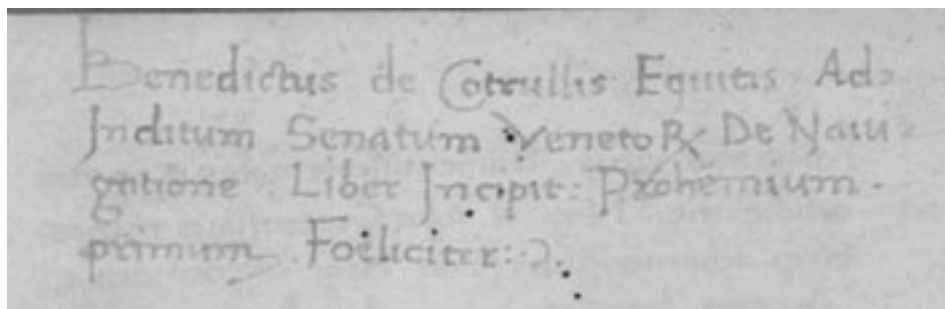 Benedictus de Cotrullis Equitis Ad
Inclitum Senatum VenetoꝜ De Naui
gatione . Liber Incipit : Prohemium .
primum . Foeliciter :